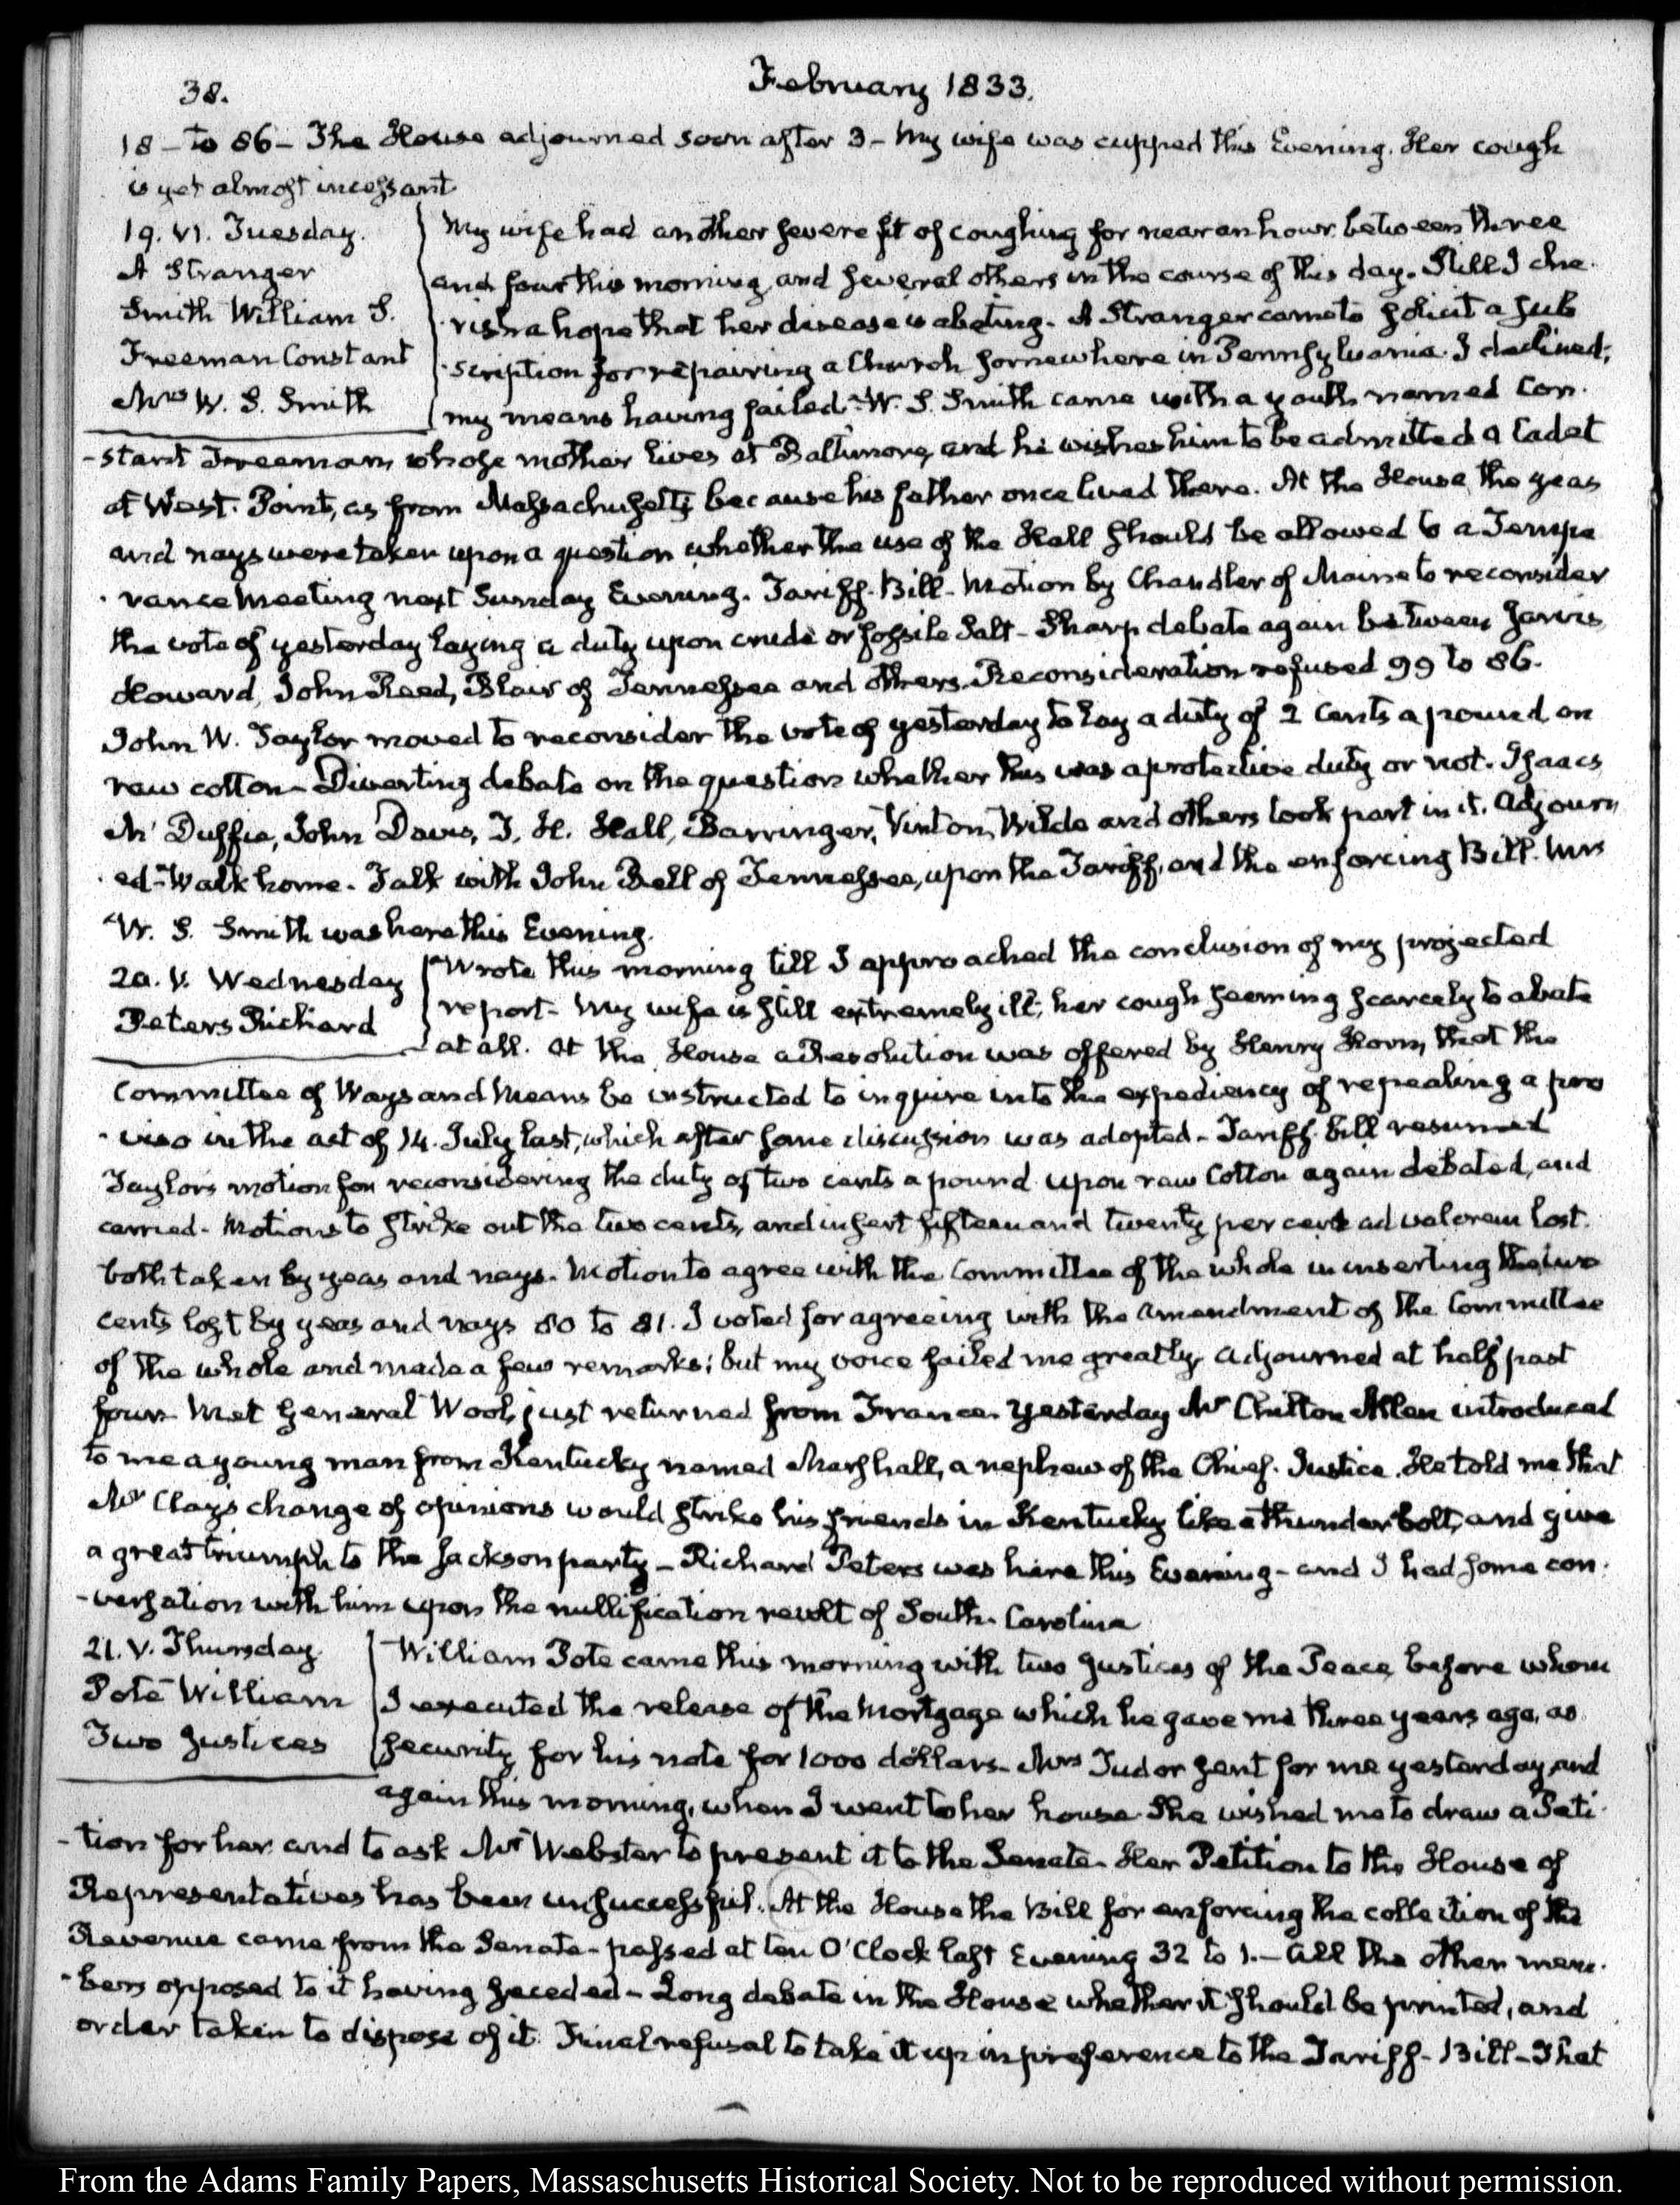 38.
February 1833.
18 – to 86 – The House adjourned soon after 3 – My wife was cupped this Evening. Her cough
is yet almost incessant
19. VI. Tuesday.
A Stranger
Smith William S.
Freeman Constant
Mrs W. S. Smith
My wife had another severe fit of coughing for near an hour between three
and four this morning, and several others in the course of this day. Still I che-
-rish a hope that her disease is abating. A Stranger came to solicit a sub
-scription for repairing a Church somewhere in Pennsylvania. I declined;
my means having failed. W. S. Smith came with a youth named Con-
-stant Freeman, whose mother lives at Baltimore, and he wishes him to be admitted a Cadet
at West-Point, as from Massachusetts because his father once lived there. At the House, the yeas
and nays were taken upon a question whether the use of the Hall should be allowed to a Tempe
-rance Meeting next Sunday Evening. Tariff-Bill – Motion by Chandler of Maine to reconsider
the vote of yesterday laying a duty upon crude or fossile Salt – Sharp debate again between Jarvis,
Howard, John Reed, Blair of Tennessee and others. Reconsideration refused 99 to 86.
John W. Taylor moved to reconsider the vote of yesterday to lay a duty of 2 Cents a pound on
raw cotton – Diverting debate on the question whether this was a protective duty or not. Isaacs,
Mc Duffie, John Davis, T. H. Hall, Barringer, Vinton, Wilde and others took part in it. Adjourn
-ed – Walk home. Talk with John Bell of Tennessee, upon the Tariff, and the enforcing Bill. Mrs
W. S. Smith was here this Evening.
20. V. Wednesday
Peters Richard
Wrote this morning till I approached the conclusion of my projected
report – My wife is still extremely ill; her cough seeming scarcely to abate
at all. At the House a Resolution was offered by Henry Horn, that the
Committee of Ways and Means be instructed to inquire into the expediency of repealing a pro
-viso in the act of 14. July last, which after some discussion was adopted – Tariff bill resumed
Taylor's motion for reconsidering the duty of two cents a pound upon raw Cotton again debated, and
carried – Motions to strike out the two cents, and insert fifteen and twenty per cent ad valorem lost.
both taken by yeas and nays. Motion to agree with the Committee of the whole in inserting the two
cents lost by yeas and nays 80 to 81. I voted for agreeing with the amendment of the Committee
of the whole and made a few remarks; but my voice failed me greatly. Adjourned at half past
four. Met General Wool, just returned from France. Yesterday Mr Chilton Allen introduced
to me a young man from Kentucky named Marshall, a nephew of the Chief-Justice. He told me that
Mr Clay's change of opinions would strike his friends in Kentucky like a thunderbolt, and give
a great triumph to the Jackson party – Richard Peters was here this Evening – and I had some con-
-versation with him upon the nullification revolt of South-Carolina
21. V. Thursday
Pote William
Two Justices
William Pote came this morning with two Justices of the Peace, before whom
I executed the release of the Mortgage which he gave me three years ago, as
security for his note for 1000 dollars. Mrs Tudor sent for me yesterday, and
again this morning, when I went to her house. She wished me to draw a Peti-
-tion for her and to ask Mr Webster to present it to the Senate. Her Petition to the House of
Representatives has been unsuccessful. At the House the Bill for enforcing the collection of the
Revenue came from the Senate – passed at ten O'Clock last Evening 32 to 1. – All the other mem-
-bers opposed to it having seceded – Long debate in the House whether it should be printed, and
order taken to dispose of it. Final refusal to take it up in preference to the Tariff-Bill – That
From the Adams Family Papers, Massachusetts Historical Society. Not to be reproduced without permission.